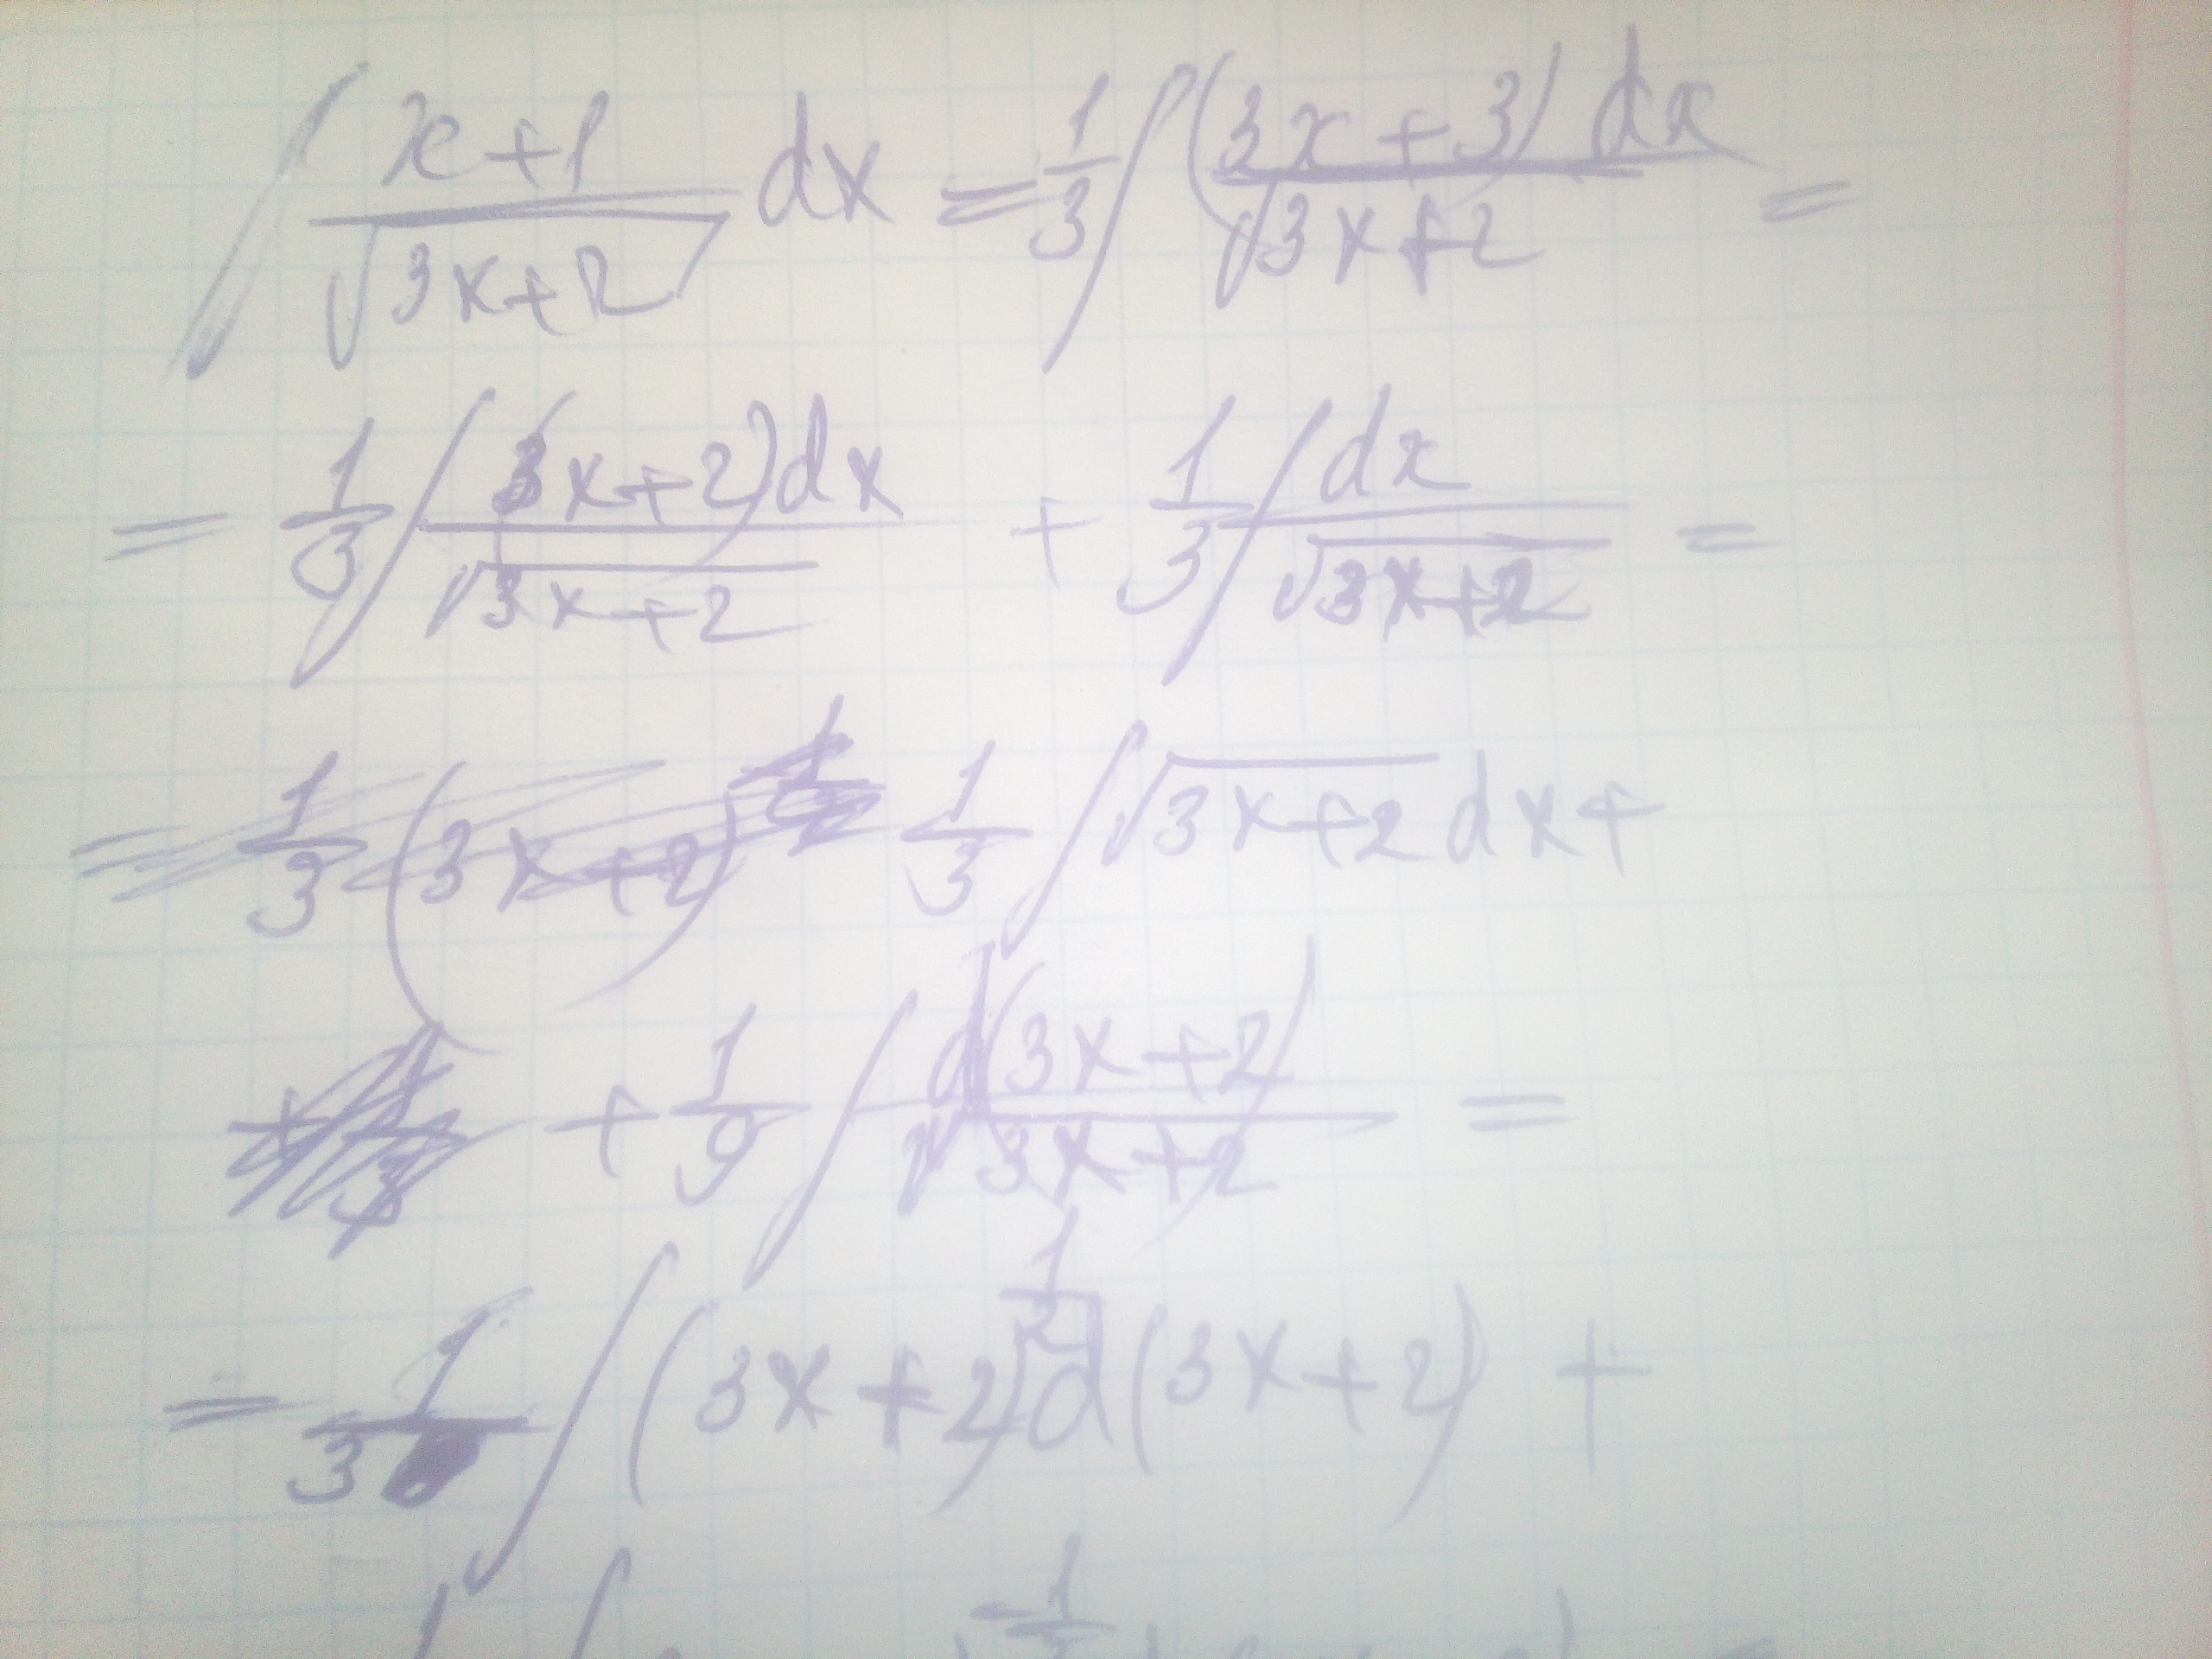 ∫ (x+1)/√(3x+2) dx = 1/3 ∫ (3x+3) dx/√(3x+2) =
= 1/3 ∫ (3x+2)dx/√(3x+2) + 1/3 ∫ dx/√(3x+2) =
= 1/3 (3x+2)^(1/2) 1/3 ∫ √(3x+2) dx +
+ 1/3 + 1/9 ∫ d(3x+2)/√(3x+2) =
= 1/3 ∫ (3x+2)^(1/2) d(3x+2) +